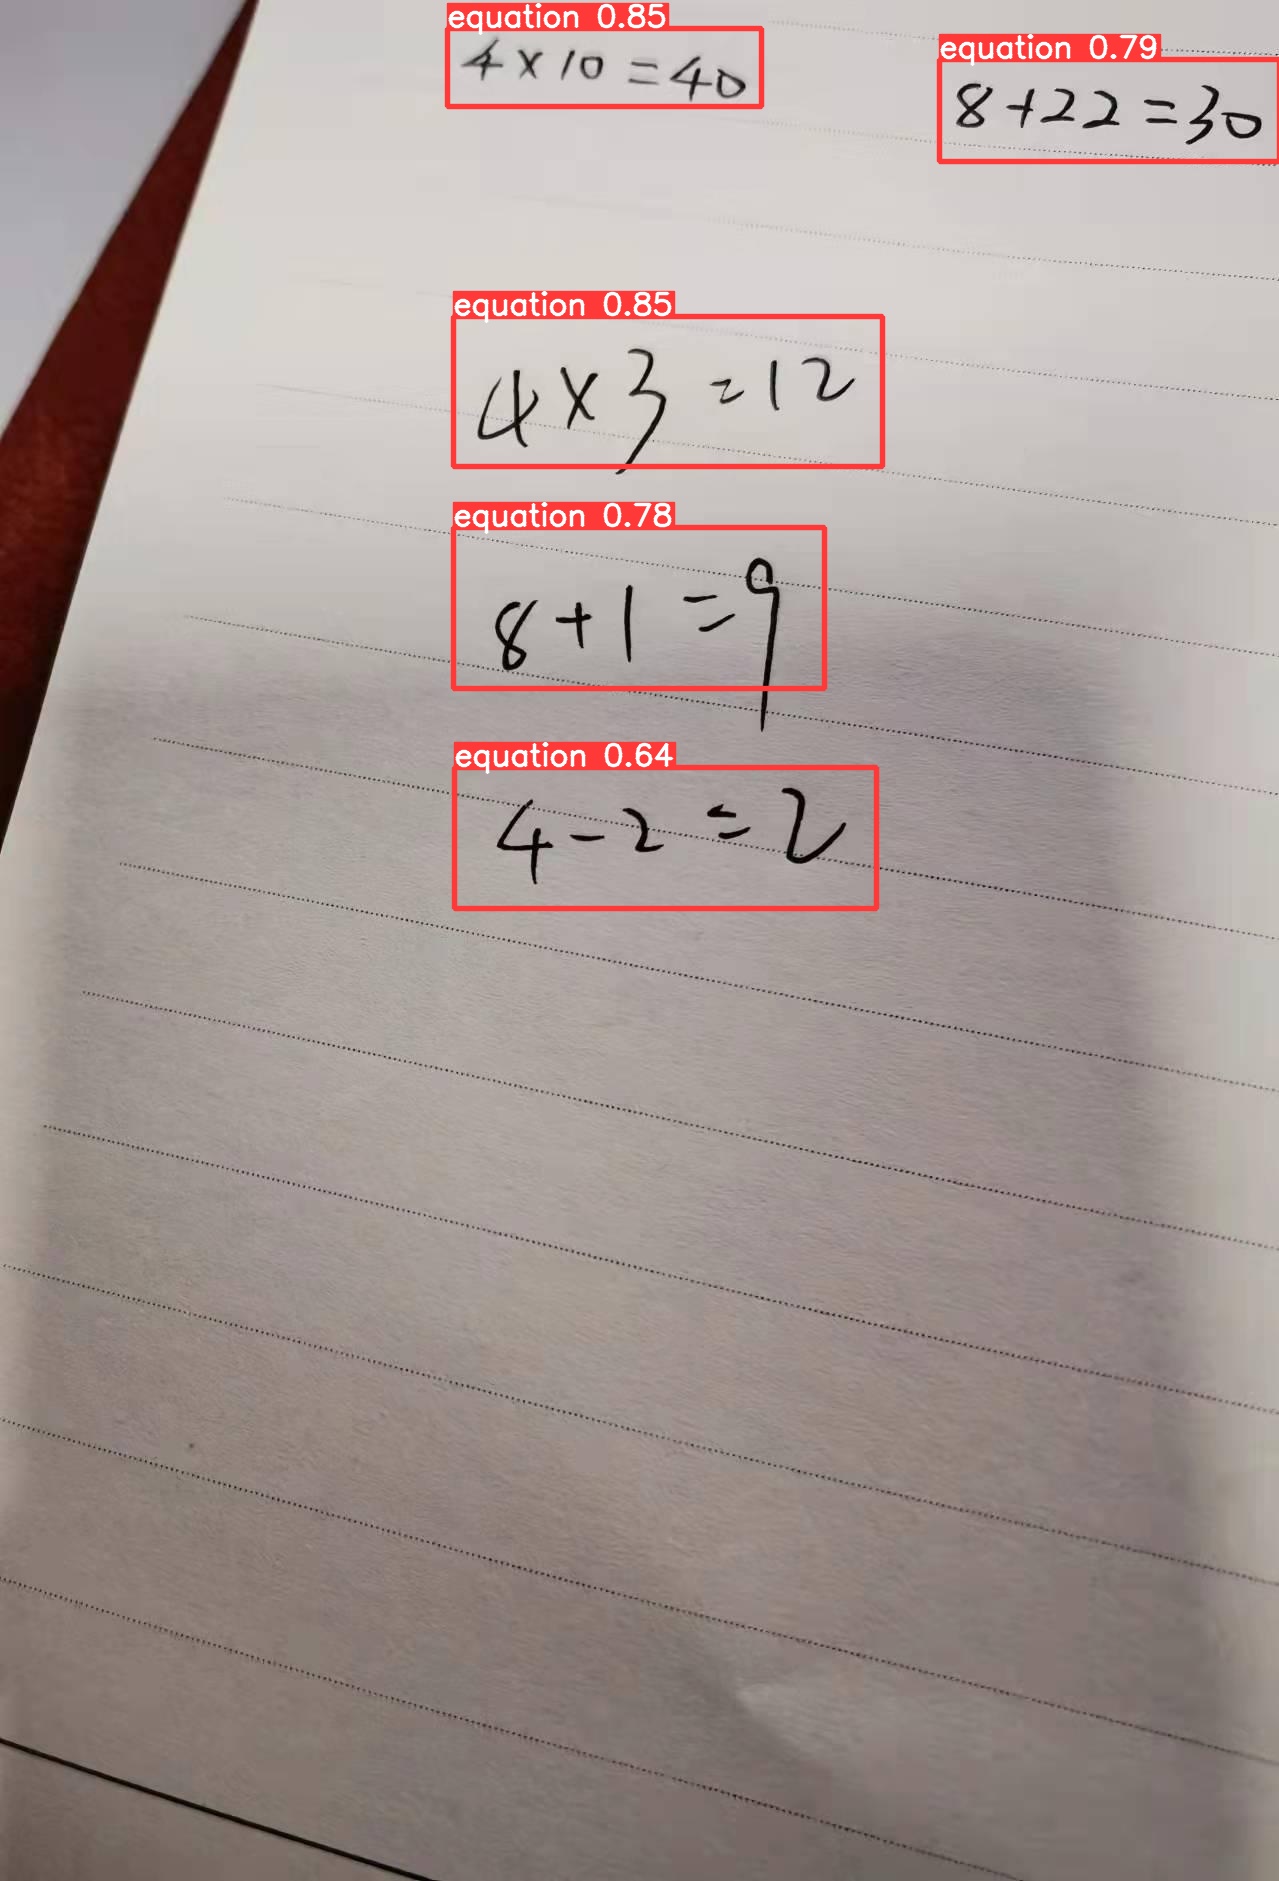 equation 0.85
4×10=40
equation 0.79
8+22=30
equation 0.85
4×3=12
equation 0.78
8+1=9
equation 0.64
4-2=2